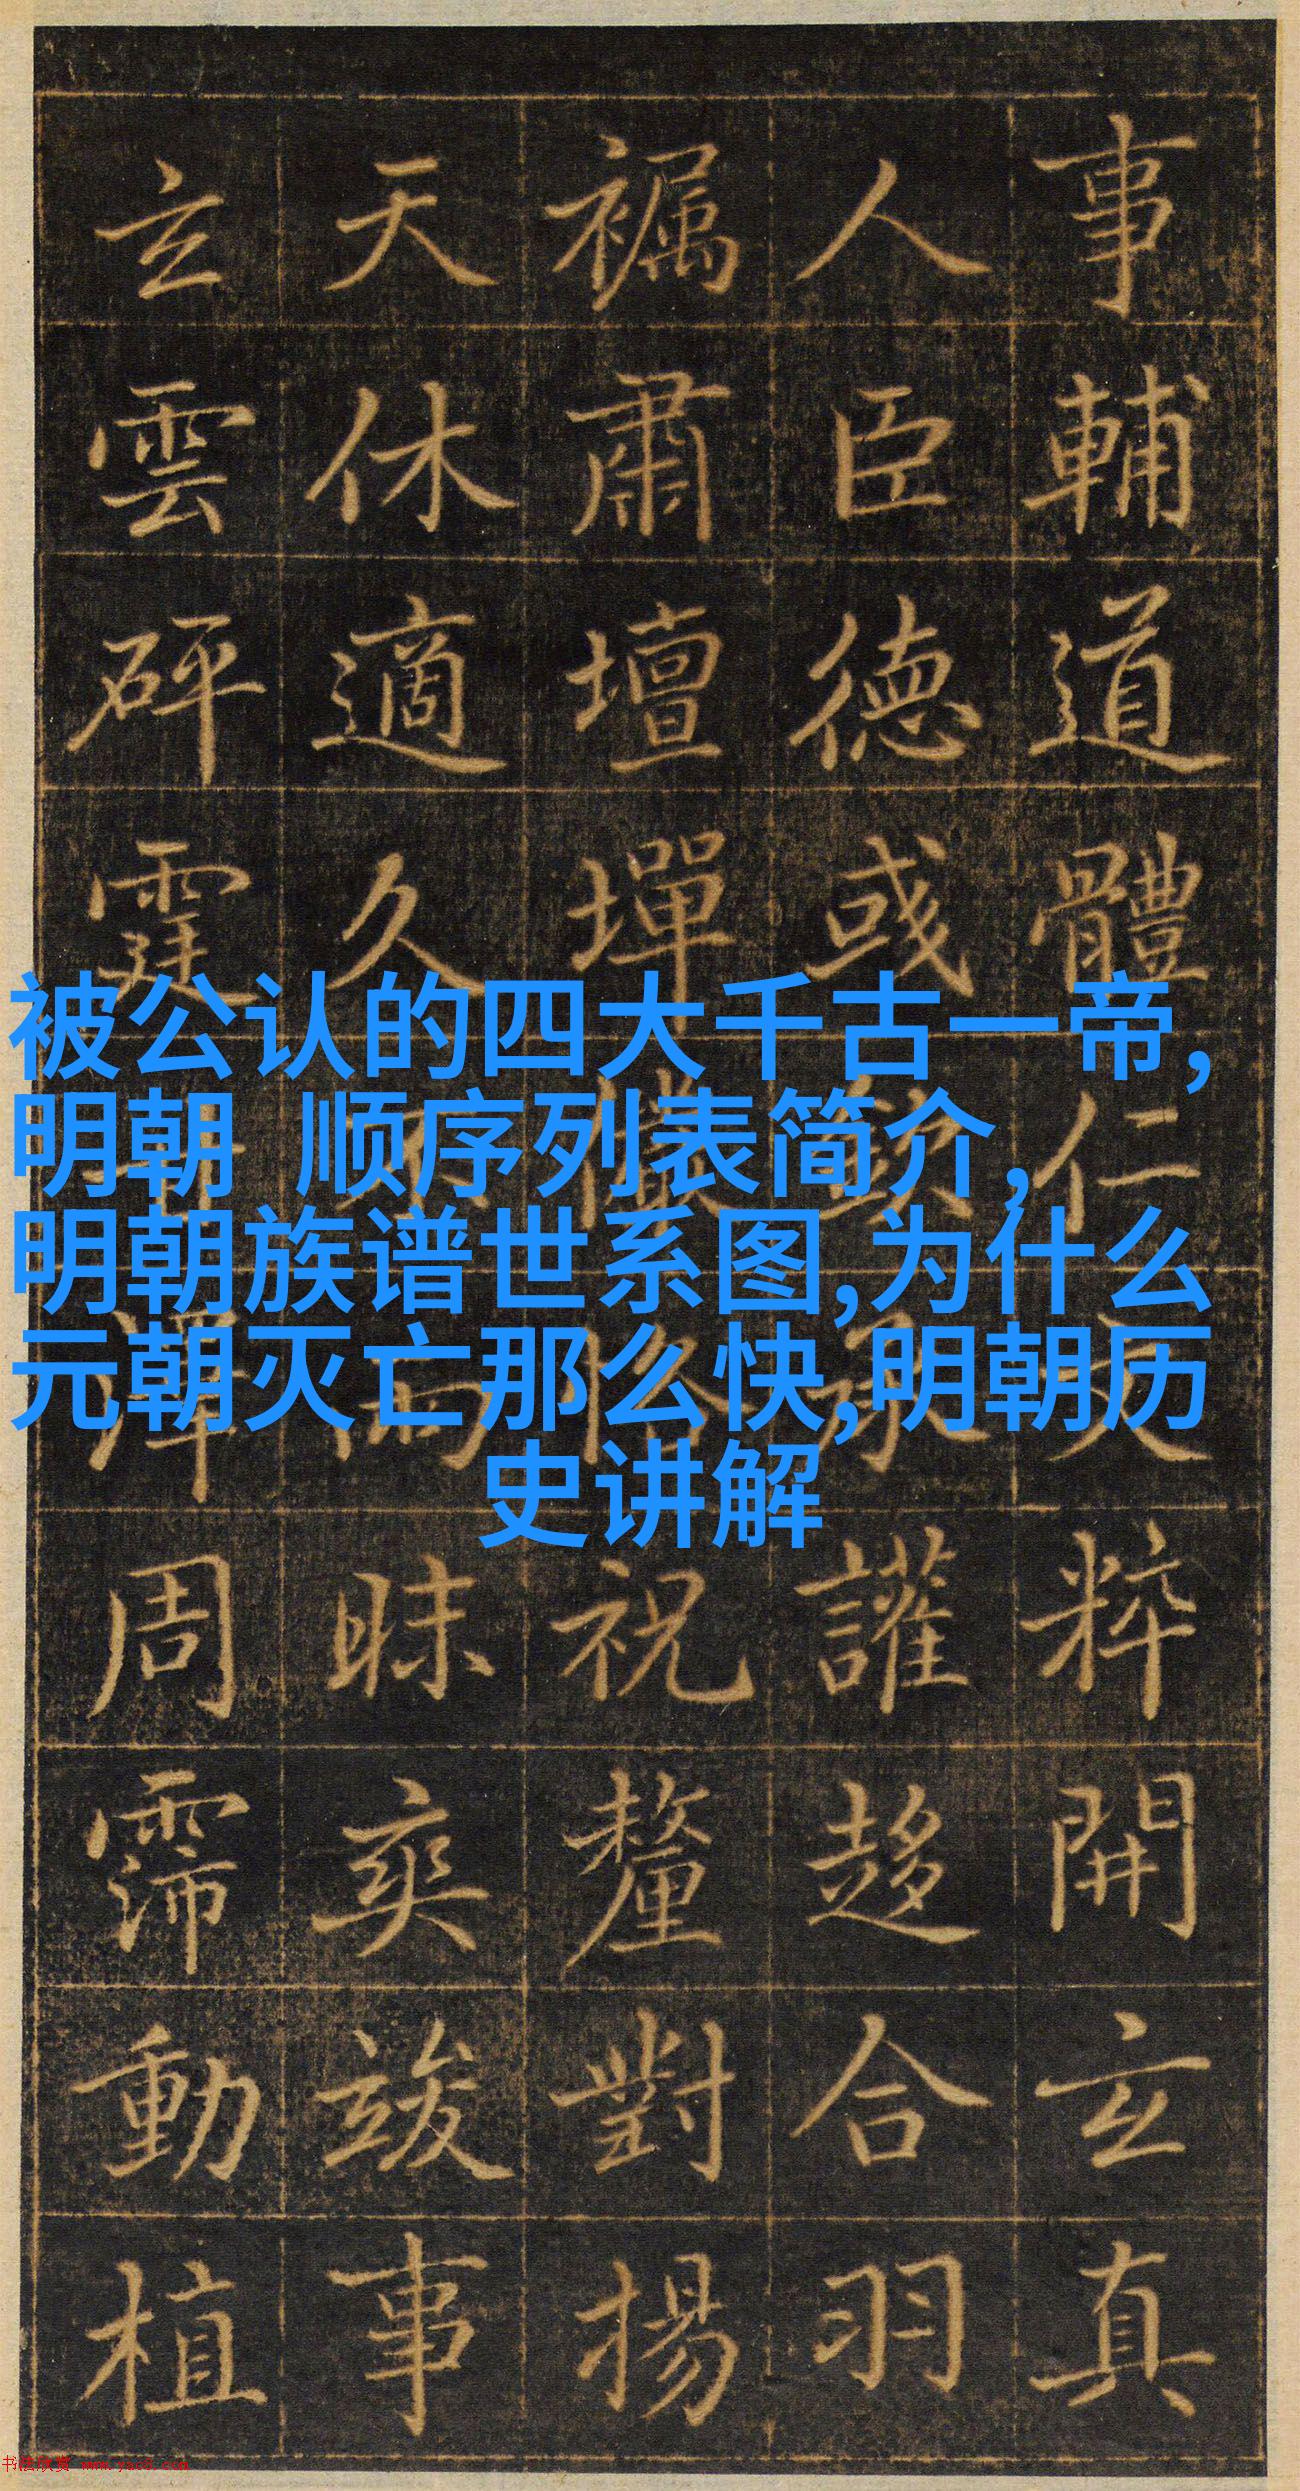 事輔道體仁文粹開玄真
人臣德或承讙趍合羽
肅壇墠祝釐對揚
天休適久不雨昧爽竣事
玄雲砰霆甘澤周霈動植
被公认的四大千古一帝,
明朝 顺序列表简介,
明朝族谱世系图,为什么
元朝灭亡那么快,明朝历
史讲解
书法欣赏 www.yac8.com